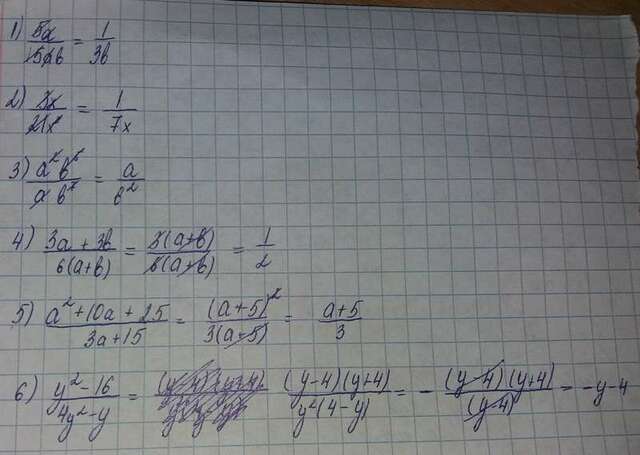 1) 5a/15ab = 1/3b
2) 3x/21x² = 1/7x
3) a²b⁵/ab⁷ = a/b²
4) 3a + 3b/6(a+b) = 3(a+b)/6(a+b) = 1/2
5) a² + 10a + 25/3a + 15 = (a+5)²/3(a+5) = a+5/3
6) y² - 16/4y² - y = (y-4)(y+4)/y²(4-y) = - (y-4)(y+4)/(y-4) = -y-4